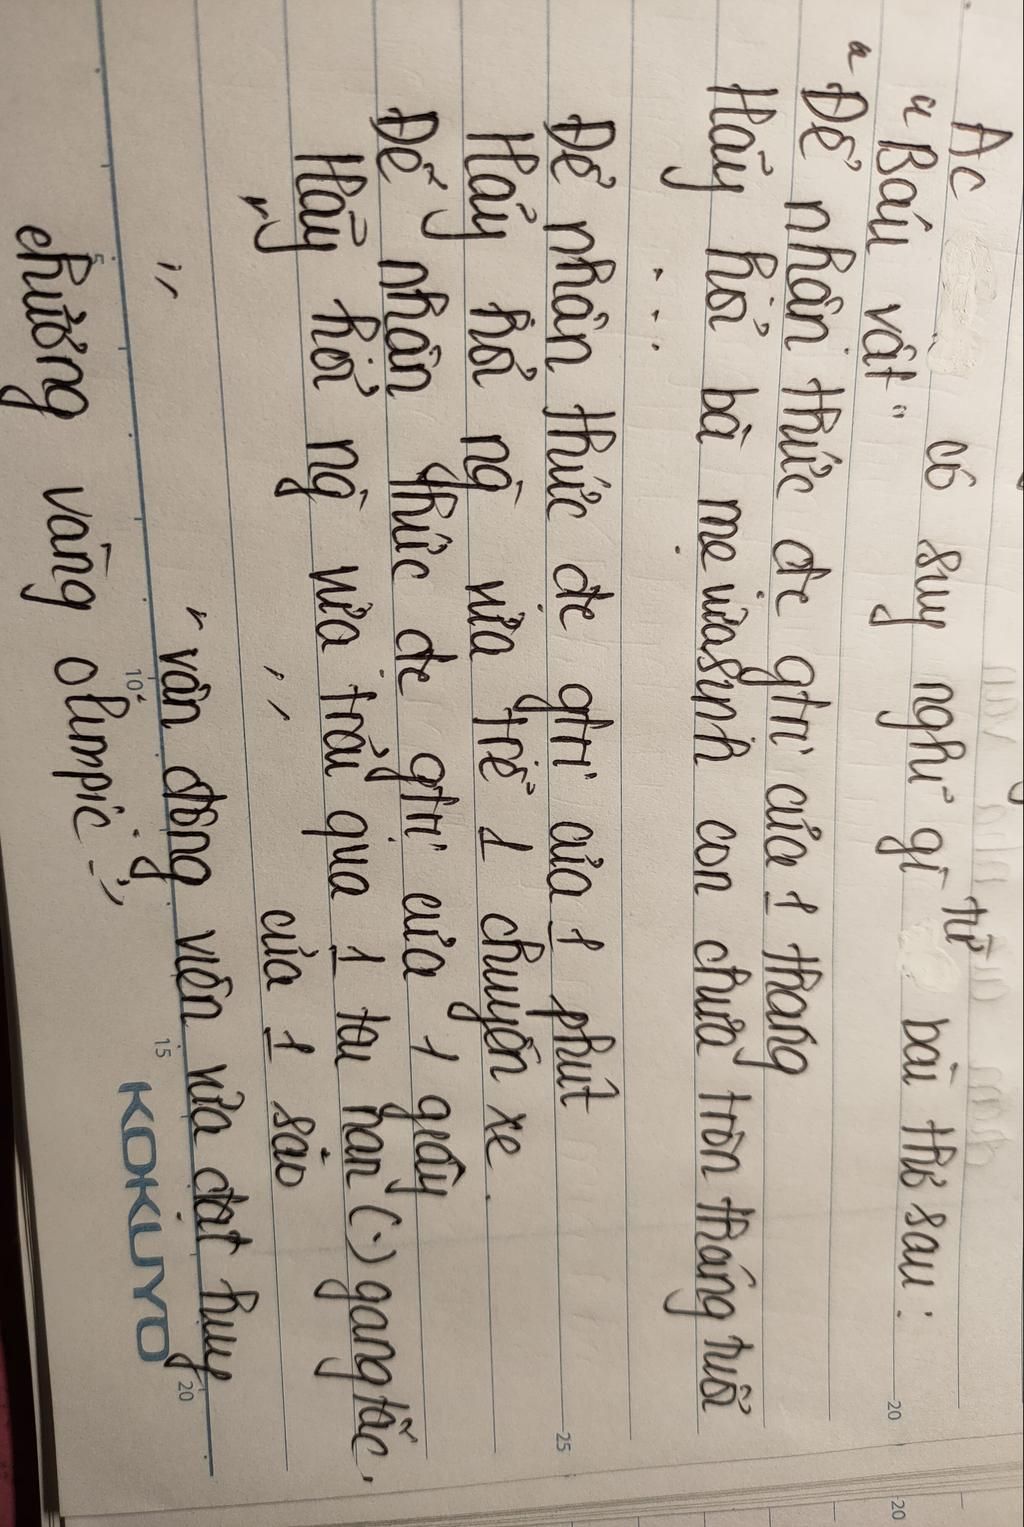 Ac có suy nghĩ gì từ bài thơ sau:
"Báu vật"
"Để nhận thức đc gtrị của 1 tháng
Hãy hỏi bà mẹ vừa sinh con chưa tròn tháng tuổi
...
Để nhận thức đc gtrị của 1 phút
Hãy hỏi ng vừa trễ 1 chuyến xe.
Để nhận thức đc gtrị của 1 giây
Hãy hỏi ng vừa trải qua 1 tai nạn (.) gang tấc.
" " của 1 sao
" " vận động viên vừa đạt huy
chương vàng olimpic."
5 10 15 20
20
25
20
KOKUYO